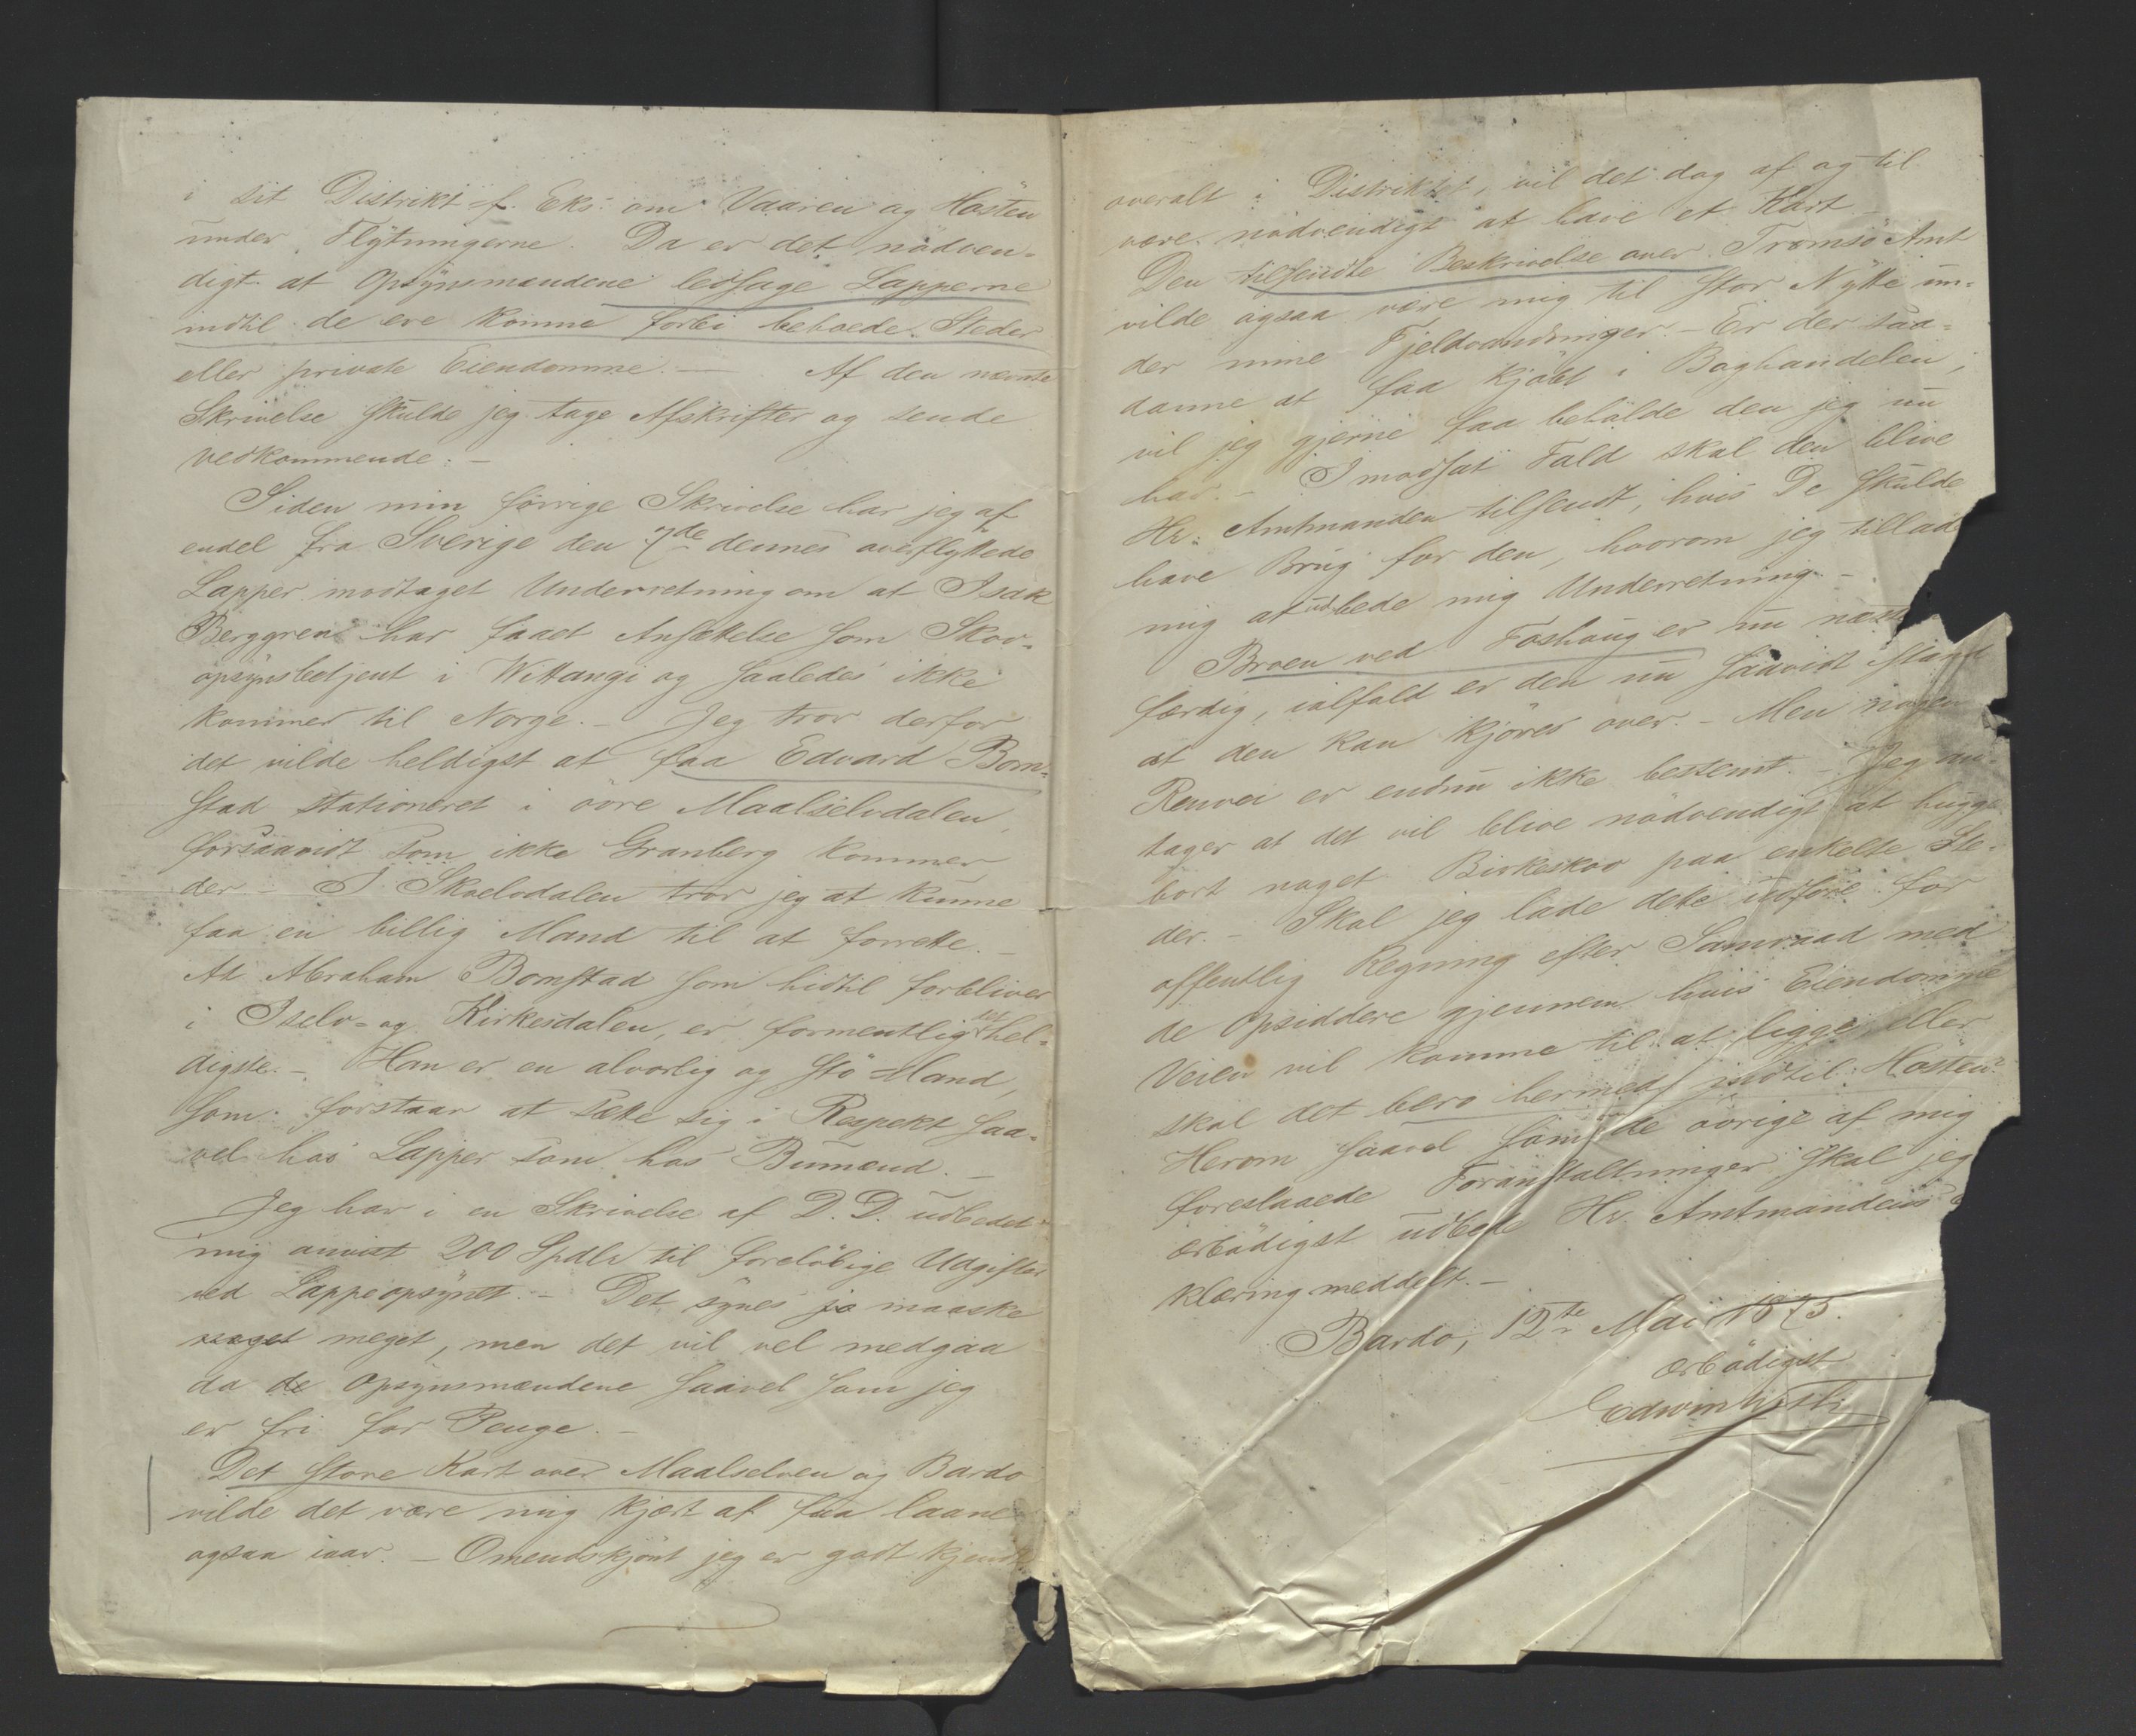 i sit Distrikt f. Eks. om Vaaren og Høsten
under Flÿtningerne. Da er det nødven-
digt at Opsÿnsmændene ledsage Lapperne
indtil de ere komne forbi beboede Steder
eller private Eiendomme. — Af den nævnte
Skrivelse skulde jeg tage Afskrifter og sende
Vedkommende. —
Siden min forrige Skrivelse har jeg af
endel fra Sverige den 7de dennes overflyttede
Lapper modtaget Underretning om at Isak
Berggren har faaet Ansættelse som Skov-
opsÿnsbetjent i Wittangi og saaledes ikke
kommer til Norge. — Jeg tror derfor
det vilde heldigst at faa Edvard Bom-
stad stationeret i øvre Maalselvdalen,
forsaavidt som ikke Granberg kommer
der — I Skoelvdalen tror jeg at kunne
faa en billig Mand til at forrette. —
At Abraham Bomstad som hidtil forbliver
i Iselv- og Kirkesdalen, er formentlig det hel-
digste. — Han er en alvorlig og stø Mand,
som forstaar at sætte sig i Respekt saa-
vel hos Lapper som hos Bumænd. —
Jeg har i en Skrivelse af D. D. udbedet
mig anvist 200 Spdlr til foreløbige Udgifter
ved Lappeopsÿnet. — Det synes jo maaske
meget, men det vil vel medgaa
da de Opsynsmændene saavel som jeg
er fri for Penge. —
Det store Kart over Maalselven og Bardo
vilde det være mig kjært at faa laane
ogsaa iaar. — Omendskjønt jeg er godt kjendt
overalt i Distriktet, vil det dog af og til
være nødvendigt at have et Kart —
Den tilsendte Beskrivelse over Tromsø Amt
vilde ogsaa være mig til stor Nytte un-
der mine Fjeldvandringer. — Er der saa-
danne at faa kjøbt i Boghandelen,
vil jeg gjerne faa beholde den jeg nu
har. — I modsat Fald skal den blive
Hr. Amtmanden tilsendt, hvis De skulde
have Brug for den, hvorom jeg tillad
mig at udbede mig Underretning —
Broen ved Foshoug er nu næsten
færdig, ialfald er den nu saavidt istand
at den kan kjøres over. — Men nogen
Renvei er endnu ikke bestemt. — Jeg an-
tager at det vil blive nødvendigt at hugge
bort noget Birkeskov paa enkelte Ste-
der. — Skal jeg lade dette udføre for
offentlig Regning efter Samraad med
de Opsiddere gjennem hvis Eiendomme
Veien vil komme til at ligge eller
skal det bero hermed indtil Høsten?
Herom saavel som de øvrige af mig
foreslaaede Foranstaltninger skal jeg
ærbødigst udbede Hr. Amtmandens
klæring meddelt. —
Bardo, 12te Mai 1875.
ærbødigst